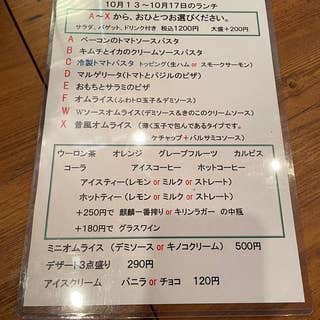 10月13～10月17日のランチ
A～Xから、おひとつお選びください。
サラダ、バゲット、ドリンク付き 税込1200円 大盛+200円
A ベーコンのトマトソースパスタ
B キムチとイカのクリームソースパスタ
C 冷製トマトパスタ トッピング(生ハム or スモークサーモン)
D マルゲリータ(トマトとバジルのピザ)
E おもちとサラミのピザ
F オムライス(ふわトロ玉子&デミソース)
W Wソースオムライス(デミソース&きのこのクリームソース)
X 昔風オムライス (薄く玉子で包んであるタイプです。
ケチャップ+バルサミコソース)
ウーロン茶 オレンジ グレープフルーツ カルピス
コーラ アイスコーヒー ホットコーヒー
アイスティー(レモン or ミルク or ストレート)
ホットティー(レモン or ミルク or ストレート)
+250円で 麒麟一番搾り or キリンラガー の中瓶
+180円で グラスワイン
ミニオムライス (デミソース or キノコクリーム) 500円
デザート3点盛り 290円
アイスクリーム バニラ or チョコ 120円